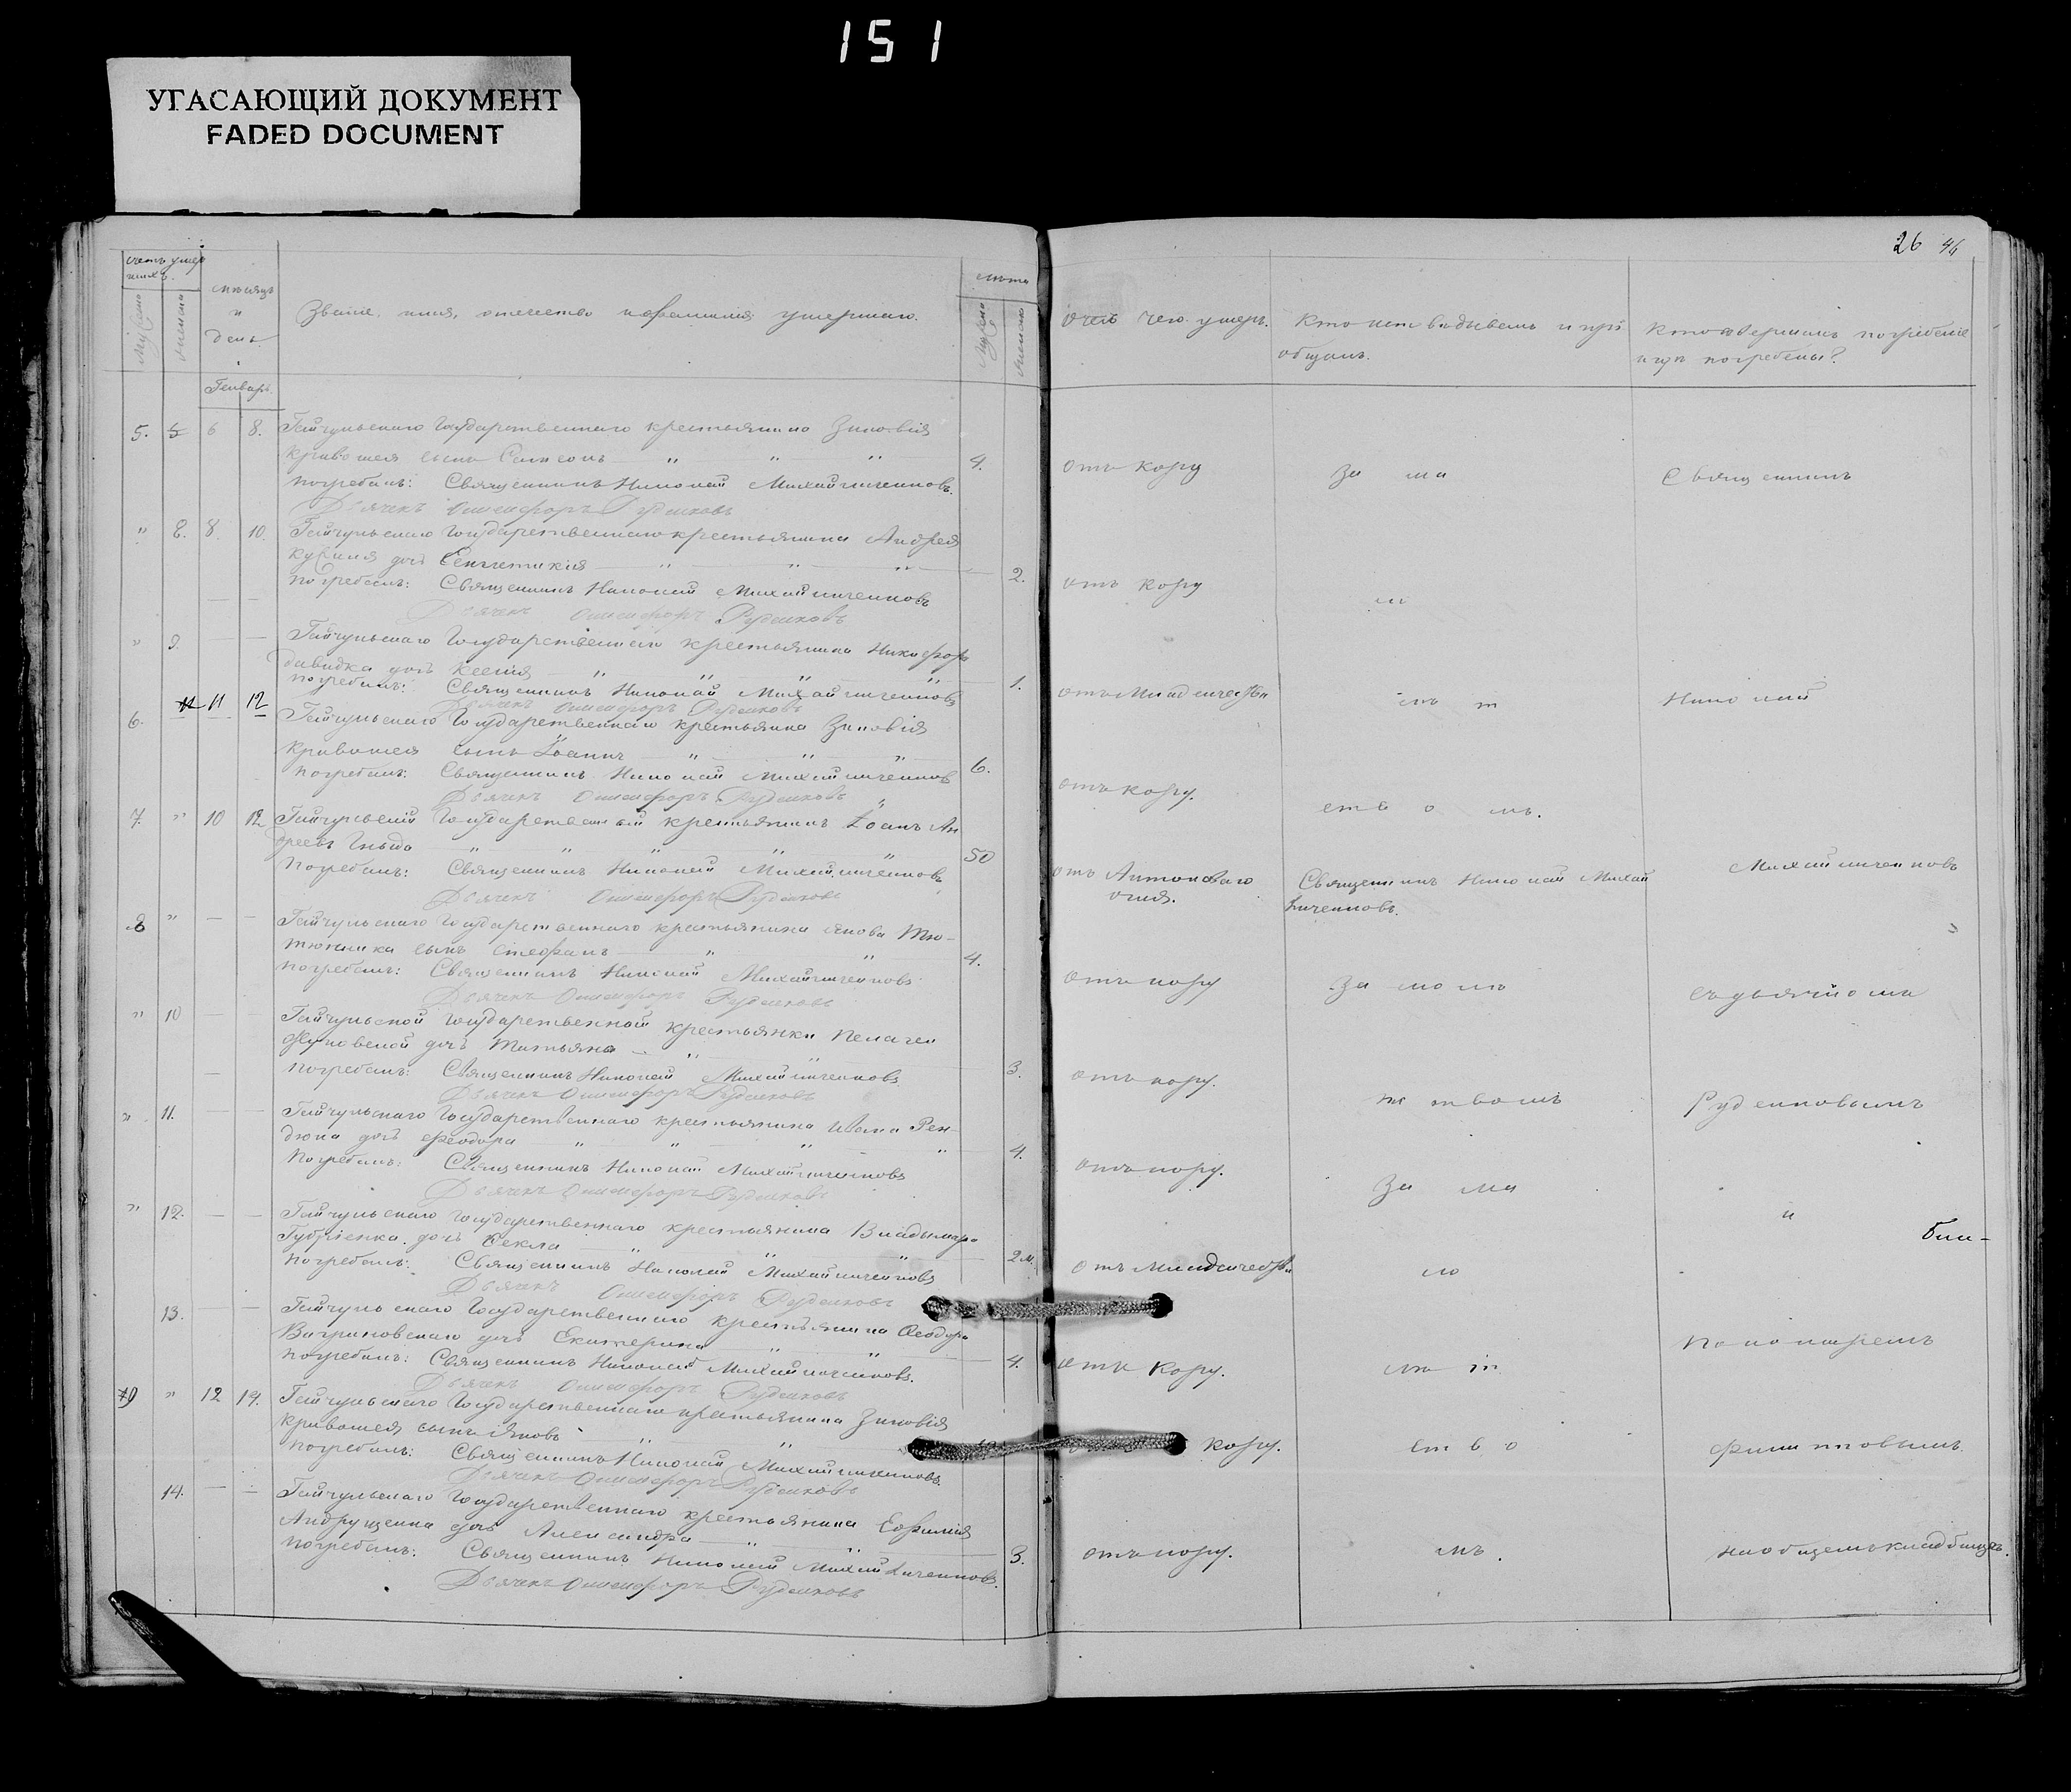 151
УГАСАЮЩИЙ ДОКУМЕНТ
FADED DOCUMENT
26 46
Счетъ умер
шихъ.
Мужеска
Женска
мѣсяцъ
и
день
Званіе, имя, отчество и фамилія умершаго.
лѣта
Мужеска
Женска
Отъ чего умеръ.
Кто исповѣдывалъ и прі
общалъ.
Кто совершалъ погребеніе
и гдѣ погребены?
Генварь
5. 5 6 8. Гайчульскаго Государственнаго крестьянина Зиновія
Кривошея сынъ Самсонъ " " " 4. отъ кору за ма Священникъ
Погребалъ: Священникъ Николай Михайличенковъ.
Дьячекъ Онисифоръ Руденковъ
" 8. 8. 10. Гайчульскаго Государственнаго крестьянина Андрея
дочь Сенклетикія " " " 2. отъ кору
Погребалъ: Священникъ Николай Михайличенковъ
Дьячекъ Онисифоръ Руденковъ
" 9. Гайчульскаго Государственнаго крестьянина Никифора
Давидка дочь Ксенія " " " 1. отъ Младенчества Николай
Погребалъ: Священникъ Николай Михайличенковъ
Дьячекъ Онисифоръ Руденковъ
6. 11 11 12 Гайчульскаго Государственнаго крестьянина Зиновія
Кривошея сынъ Іоаннъ " " " 6. отъ кору. ство мъ.
Погребалъ: Священникъ Николай Михайличенковъ
Дьячекъ Онисифоръ Руденковъ
7. " 10 12 Гайчульскій Государственный крестьянинъ Іоанъ Ан
дреевъ Гныда " " " " " 50 отъ Антоноваго
огня. Священникъ Николай Михай
личенковъ. Михайличенковъ
Погребалъ: Священникъ Николай Михайличенковъ
Дьячекъ Онисифоръ Руденковъ
8 " Гайчульскаго Государственнаго крестьянина Якова Тю-
тюнника сынъ Стефанъ " " 4. отъ кору за мо лъ съ дьячкомъ
Погребалъ: Священникъ Николай Михайличенковъ
Дьячекъ Онисифоръ Руденковъ
" 10 Гайчульской Государственной крестьянки Пелагеи
дочь Татьяна " 3. отъ кору.
Погребалъ: Священникъ Николай Михайличенковъ
Дьячекъ Онисифоръ Руденковъ
" 11. Гайчульскаго Государственнаго крестьянина Ивана Рен-
дюка дочь Феодора " " " " 4. отъ кору. Руденковымъ
Погребалъ: Священникъ Николай Михайличенковъ
Дьячекъ Онисифоръ Руденковъ
За ма
и
" 12. Гайчульскаго Государственнаго крестьянина Владыміра
Губріенка дочь Фекла " " " 2 м. отъ Младенчества
Погребалъ: Священникъ Николай Михайличенковъ
Дьячекъ Онисифоръ Руденковъ
13. Гайчульскаго Государственнаго крестьянина Феодора
Вагриновскаго дочь Екатерина " " 4. отъ кору. Пономаремъ
Погребалъ: Священникъ Николай Михайличенковъ.
Дьячекъ Онисифоръ Руденковъ
9 " 12 14. Гайчульскаго Государственнаго крестьянина Зиновія
Кривошея сынъ Яковъ " " кору. ство Филипповымъ.
Погребалъ: Священникъ Николай Михайличенковъ.
Дьячекъ Онисифоръ Руденковъ
14. Гайчульскаго Государственнаго крестьянина Ефимія
Андрущенка дочь Александра " " 3. отъ кору. мъ. на общемъ кладбищѣ.
Погребалъ: Священникъ Николай Михайличенковъ.
Дьячекъ Онисифоръ Руденковъ